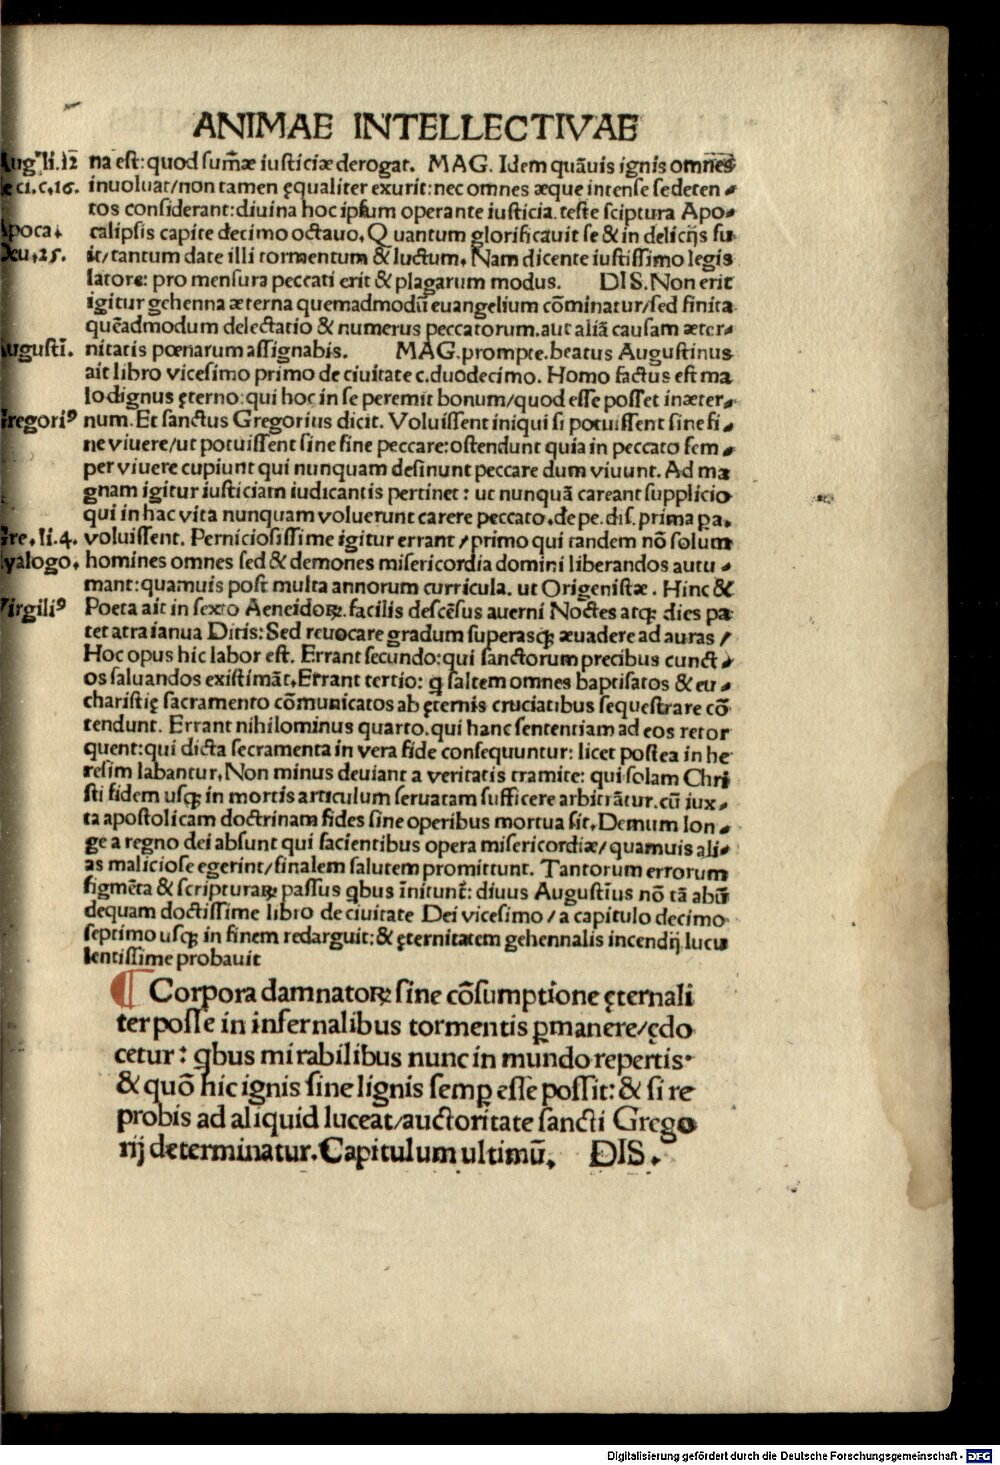 ANIMAE INTELLECTIVAE
Aug⁹ li.12 na est: quod sum̄æ iusticiæ derogat. MAG. Idem quāuis ignis omnēs
de ci. c. 16. inuoluat/non tamen ęqualiter exurit: nec omnes æque intense se deten⸗
tos considerant: diuina hoc ipsum operante iusticia. teste sciptura Apo⸗
Apoca. calipsis capite decimo octauo. Quantum glorificauit se & in delicijs fu⸗
Deu. 25. it/tantum date illi tormentum & luctum. Nam dicente iustissimo legis
latore: pro mensura peccati erit & plagarum modus. DIS. Non erit
igitur gehenna æterna quemadmodū euangelium cōminatur/sed finita
quēadmodum delectatio & numerus peccatorum. aut aliā causam æter⸗
Augusti. nitatis pœnarum assignabis. MAG. prompte. beatus Augustinus
ait libro vicesimo primo de ciuitate c. duodecimo. Homo factus est ma
lo dignus ęterno: qui hoc in se peremit bonum/quod esse posset in æter⸗
Gregori⁹ num. Et sanctus Gregorius dicit. Voluissent iniqui si potuissent sine fi⸗
ne viuere/ut potuissent sine fine peccare: ostendunt quia in peccato sem⸗
per viuere cupiunt qui nunquam desinunt peccare dum viuunt. Ad ma
gnam igitur iusticiam iudicantis pertinet: ut nunquā careant supplicio
qui in hac vita nunquam voluerunt carere peccato. de pe. dis. prima pa.
Gre. li. 4. voluissent. Perniciosissime igitur errant/primo qui tandem nō solum
dyalogo. homines omnes sed & demones misericordia domini liberandos autu⸗
mant: quamuis post multa annorum curricula. ut Origenistæ. Hinc &
Virgili⁹ Poeta ait in sexto Aeneidoꝝ. facilis descēsus auerni Noctes atqꝫ dies pa
tet atra ianua Ditis: Sed reuocare gradum superasqꝫ æuadere ad auras/
Hoc opus hic labor est. Errant secundo: qui sanctorum precibus cunct⸗
os saluandos existimāt. Errant tertio: q saltem omnes baptisatos & eu⸗
charistię sacramento cōmunicatos ab ęternis cruciatibus sequestrare cō
tendunt. Errant nihilominus quarto. qui hanc sententiam ad eos retor
quent: qui dicta secramenta in vera fide consequuntur: licet postea in he
resim labantur. Non minus deuiant a veritatis tramite: qui solam Chri
sti fidem usqꝫ in mortis articulum seruatam sufficere arbitrātur. cū iux⸗
ta apostolicam doctrinam fides sine operibus mortua sit. Demum lon⸗
ge a regno dei absunt qui facientibus opera misericordiæ/quamuis ali⸗
as maliciose egerint/finalem salutem promittunt. Tantorum errorum
figmēta & scripturaꝝ passus qbus īnitunt̄: diuus Augustīus nō tā abū
dequam doctissime libro de ciuitate Dei vicesimo/a capitulo decimo
septimo usqꝫ in finem redarguit: & ęternitatem gehennalis incendij. lucu
lentissime probauit
¶ Corpora damnatoꝝ sine cōsumptione ęternali
ter posse in infernalibus tormentis ꝑmanere/ędo
cetur: qbus mirabilibus nunc in mundo repertis.
& quō hic ignis sine lignis semꝑ esse possit: & si re
probis ad aliquid luceat/auctoritate sancti Grego
rij determinatur. Capitulum ultimū. DIS.
Digitalisierung gefördert durch die Deutsche Forschungsgemeinschaft - DFG